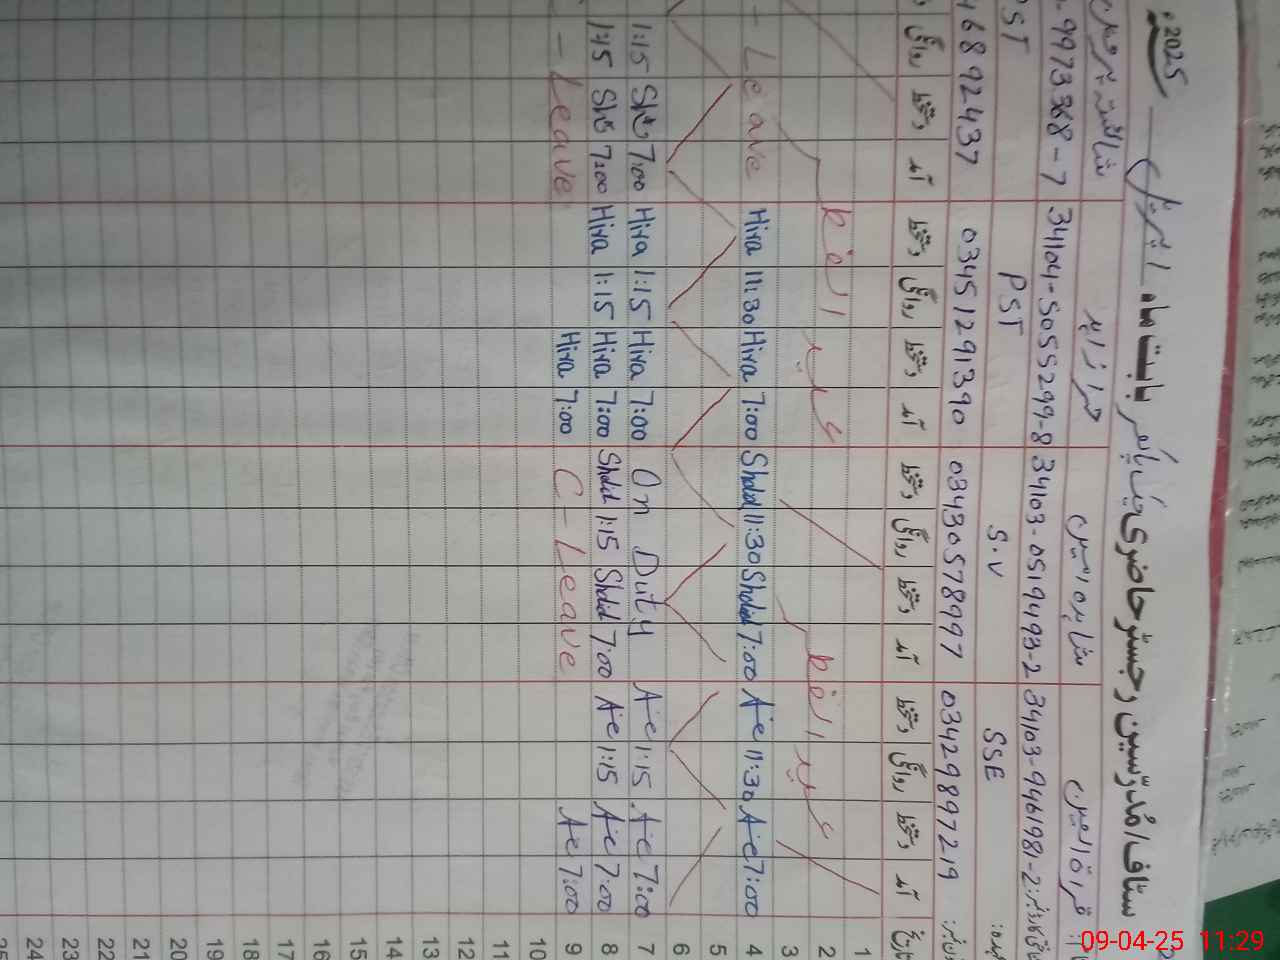 سٹاف/مُدرّسین رجسٹر حاضری مِڈل/ہائر بابت ماہ اپریل 2025ء
قرۃ العین شاہدہ امین حرا زاہد شائستہ پروین
34103-9461981-2 34103-0519493-2 34104-5055299-8 9973368-7
عہدہ: SSE S.V PST PST
03429897219 03430578997 03451291390 46892437
تاریخ آمد دستخط روانگی دستخط آمد دستخط روانگی دستخط آمد دستخط روانگی دستخط آمد دستخط روانگی
1
2 عید الفطر عید الفطر
3
4 7:00 Aie 11:30 Aie 7:00 Shahid 11:30 Shahid 7:00 Hira 11:30 Hira - Leave
5
6
7 7:00 Aie 1:15 Aie On Duty 7:00 Hira 1:15 Hira 7:00 1:15
8 7:00 Aie 1:15 Aie 7:00 Shahid 1:15 Shahid 7:00 Hira 1:15 Hira 7:00 1:15
9 7:00 Aie C - Leave 7:00 Hira - Leave
10
11
12
13
14
15
16
17
18
19
20
21
22
23
24
09-04-25 11:29